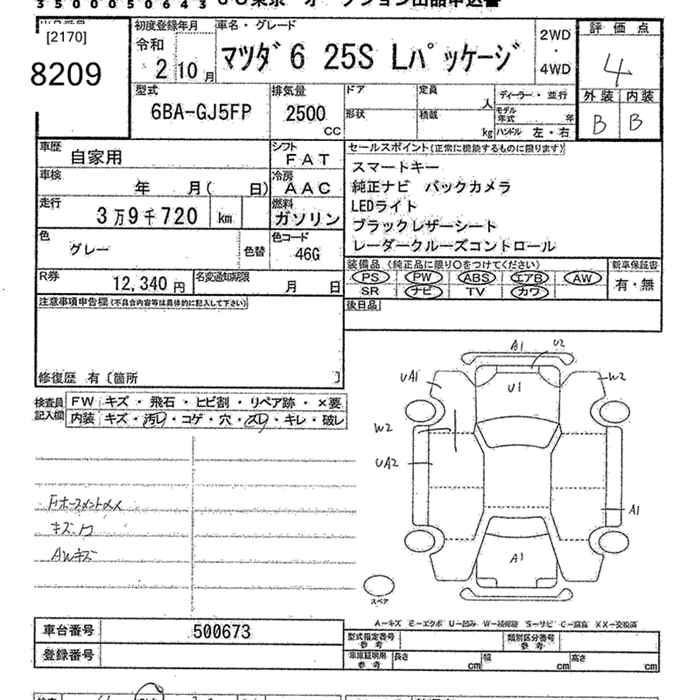 3500050643
[2170]
8209
初度登録年月
令和
2 10月
車名・グレード
マツダ6 25S Lパッケージ
2WD
・
4WD
評価点
4
外装 内装
B B
型式
6BA-GJ5FP
排気量
2500
CC
ドア
定員
人
形状
積載
kg
ディーラー・並行
モデル年式 年
ハンドル 左・右
車歴
自家用
シフト
FAT
車検
年 月( 日)
冷房
AAC
走行
3万9千720 km
燃料
ガソリン
色
グレー
色替
色コード
46G
R券
12,340円
名変通知期限
月 日
セールスポイント(正常に機能するものに限ります)
スマートキー
純正ナビ バックカメラ
LEDライト
ブラックレザーシート
レーダークルーズコントロール
装備品(純正品に限り○をつけてください)
PS PW ABS エアB AW
SR ナビ TV カワ
新車保証書
有・無
後日品
注意事項申告欄(不具合内容等は具体的に記入して下さい)
修復歴 有〔箇所 〕
検査員記入欄
FW キズ・飛石・ヒビ割・リペア跡・×要
内装 キズ・汚レ・コゲ・穴・スレ・キレ・破レ
キズ
AWキズ
A1
U2
UA1
U1
W2
W2
UA2
A1
A1
スペア
A－キズ E－エクボ U－凹み W－補修跡 S－サビ C－腐食 XX－交換済
車台番号
500673
登録番号
型式指定番号
参考
類別区分番号
参考
車庫証明用
参考
長さ cm
幅 cm
高さ cm